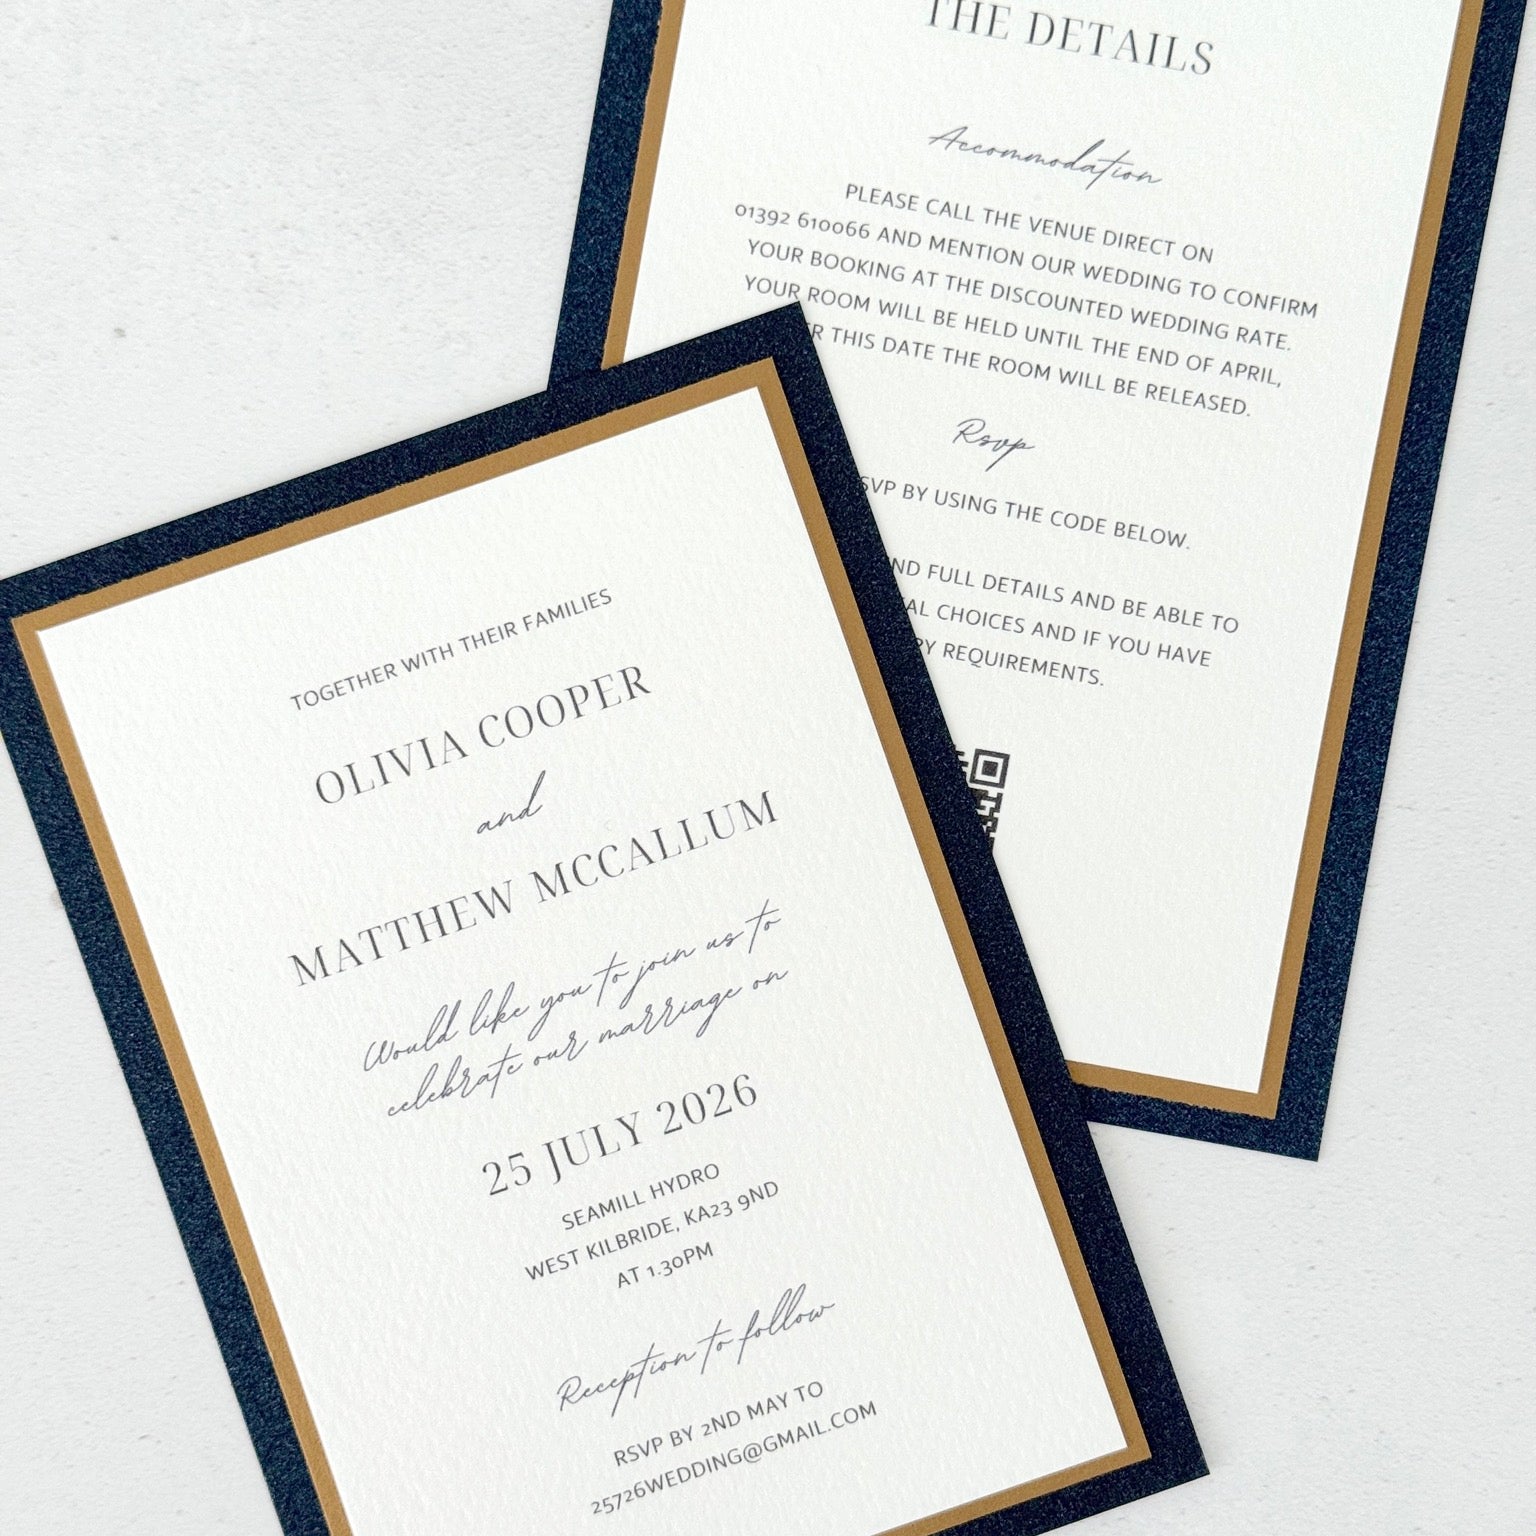 THE DETAILS
Accommodation
PLEASE CALL THE VENUE DIRECT ON
01392 610066 AND MENTION OUR WEDDING TO CONFIRM
YOUR BOOKING AT THE DISCOUNTED WEDDING RATE.
YOUR ROOM WILL BE HELD UNTIL THE END OF APRIL,
THIS DATE THE ROOM WILL BE RELEASED.
Rsvp
BY USING THE CODE BELOW.
FULL DETAILS AND BE ABLE TO
CHOICES AND IF YOU HAVE
REQUIREMENTS.
TOGETHER WITH THEIR FAMILIES
OLIVIA COOPER
and
MATTHEW MCCALLUM
Would like you to join us to
celebrate our marriage on
25 JULY 2026
SEAMILL HYDRO
WEST KILBRIDE, KA23 9ND
AT 1.30PM
Reception to follow
RSVP BY 2ND MAY TO
25726WEDDING@GMAIL.COM